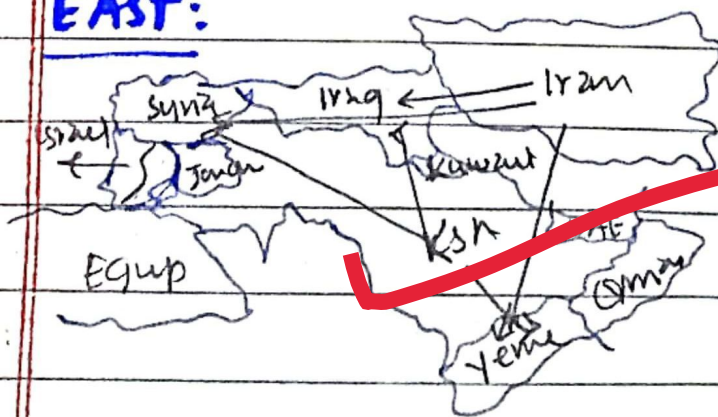 EAST:
Syria Iraq Iran
Israel Jordan Kuwait
KSA
Egyp
Oman
Yeme